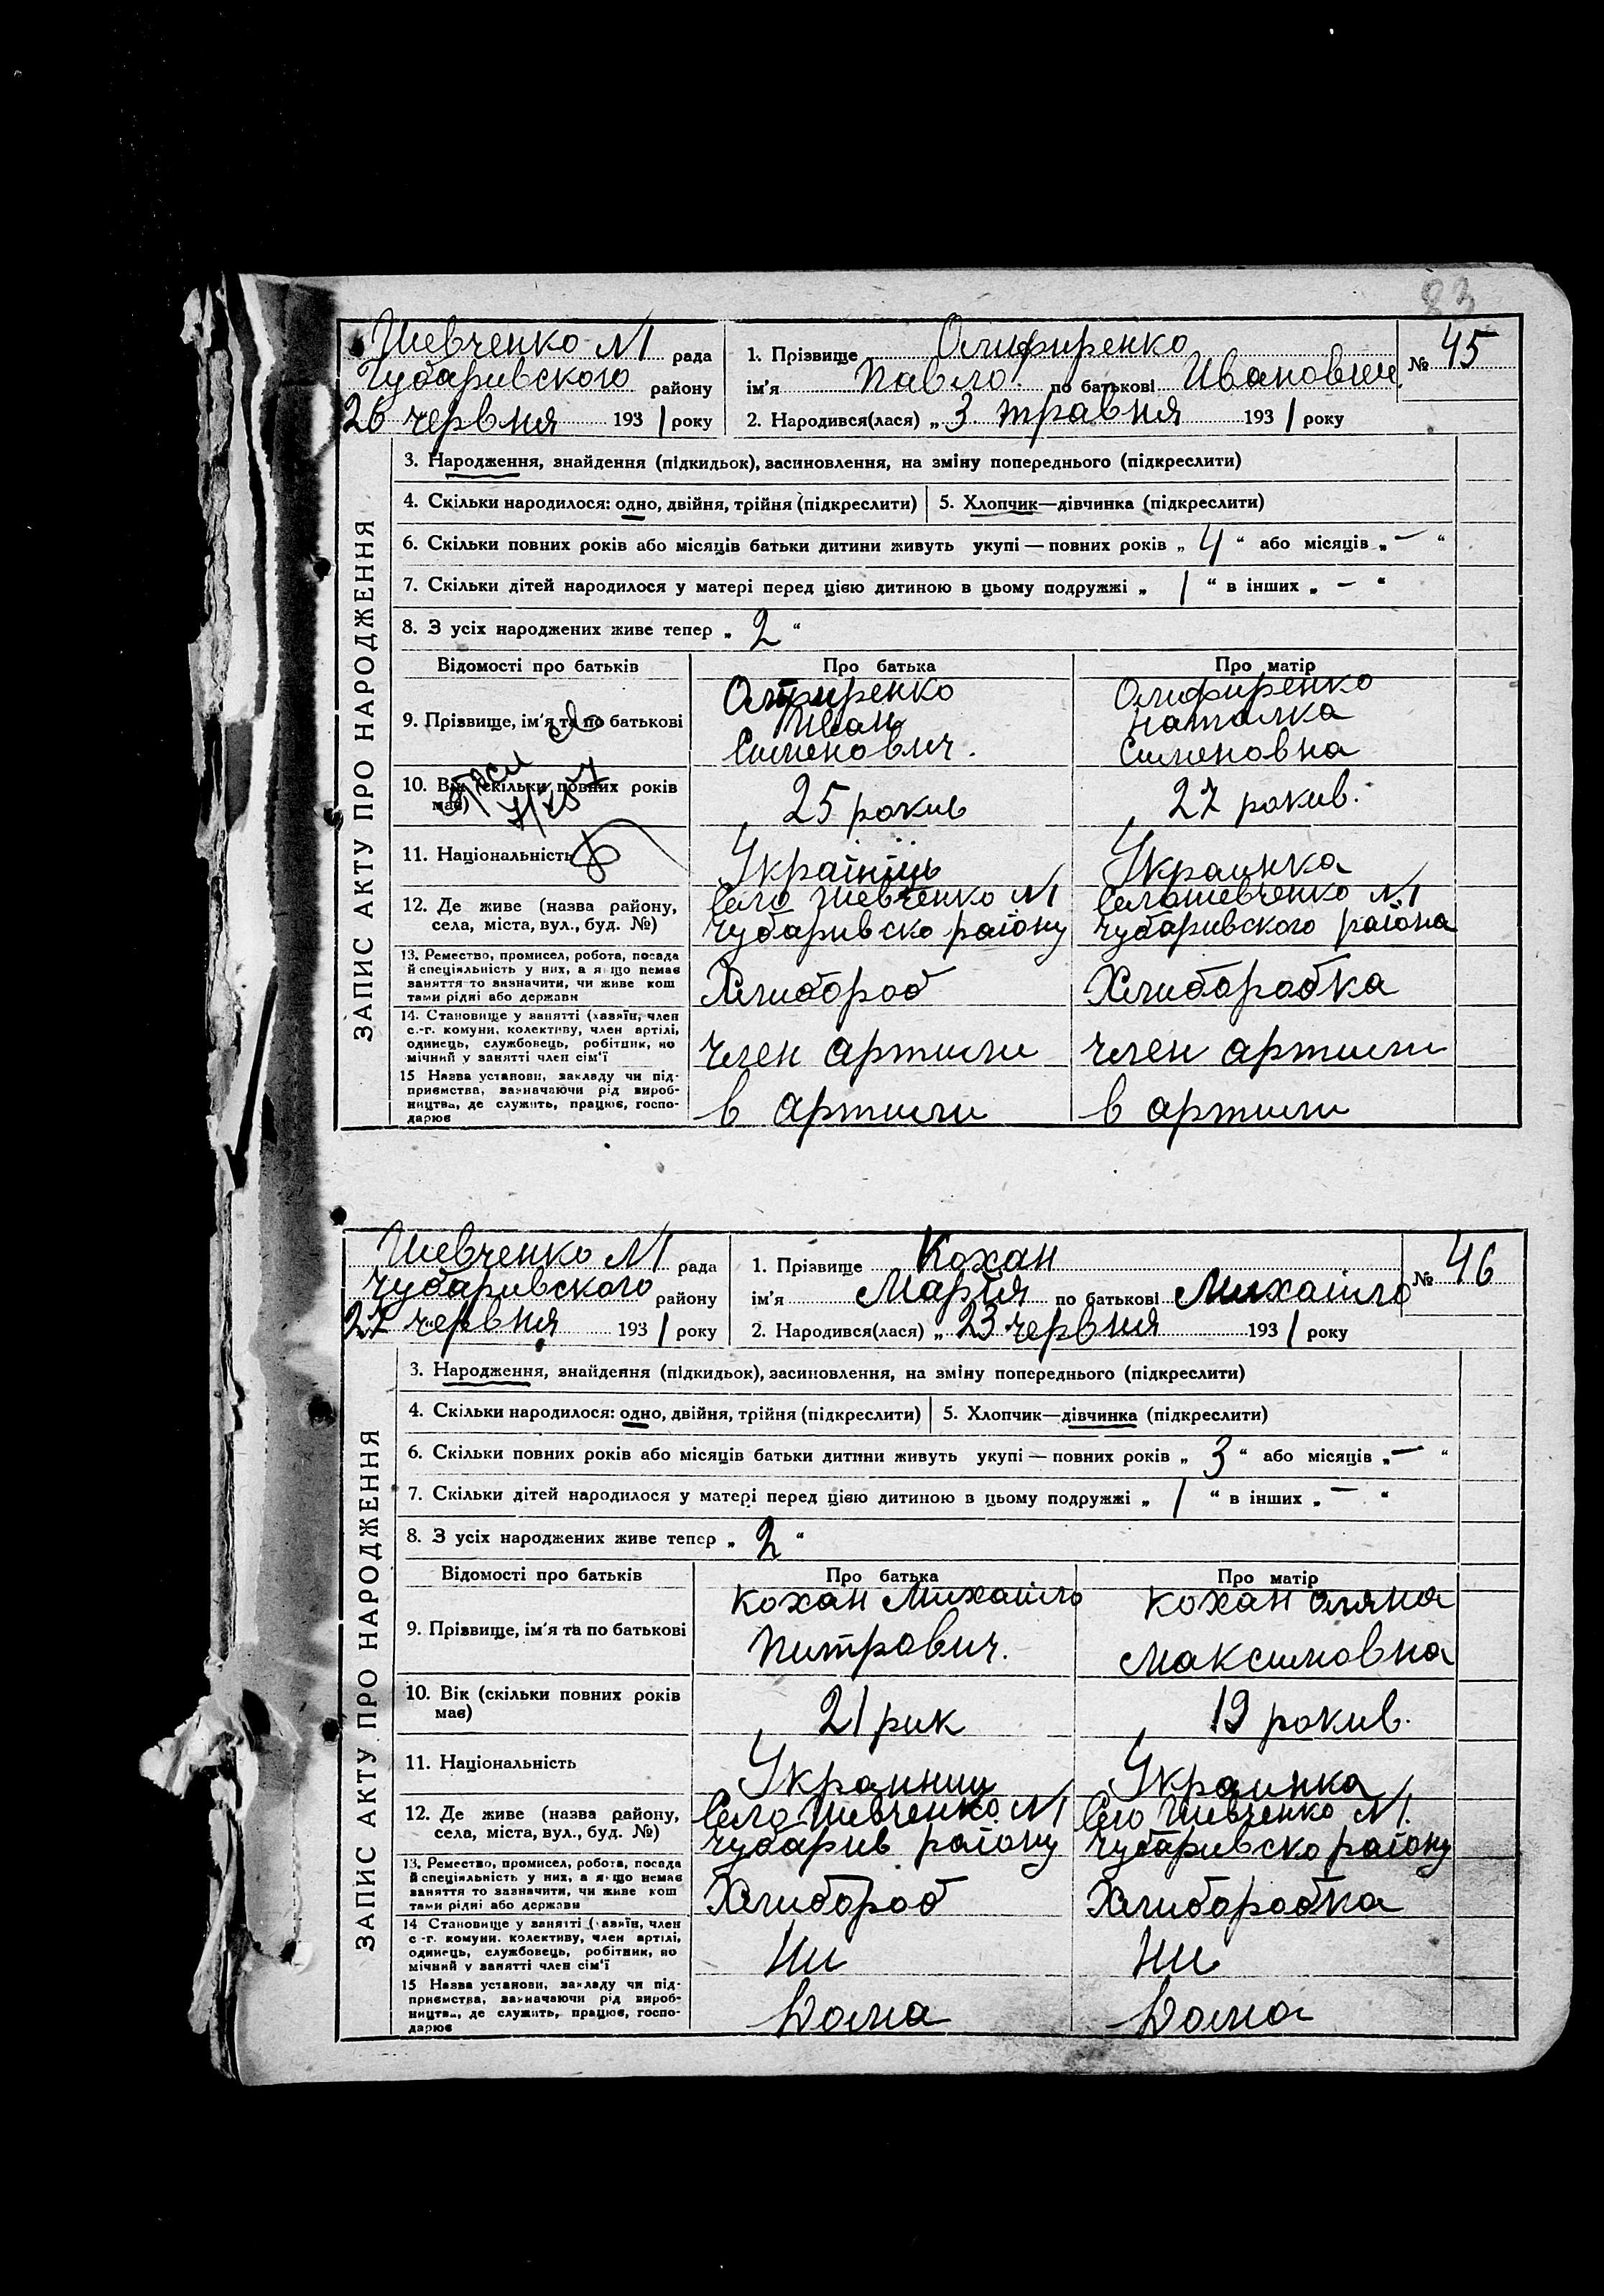 23
Шевченко N1 рада
Чубаривского району
26 червня 1931 року
1. Прізвище Олифиренко
ім'я Павло по батькові Иванович
2. Народився(лася) „3 травня 1931 року
№ 45
ЗАПИС АКТУ ПРО НАРОДЖЕННЯ
3. Народження, знайдення (підкидьок), засиновлення, на зміну попереднього (підкреслити)
4. Скільки народилося: одно, двійня, трійня (підкреслити) 5. Хлопчик—дівчинка (підкреслити)
6. Скільки повних років або місяців батьки дитини живуть укупі — повних років „ 4 “ або місяців „ — “
7. Скільки дітей народилося у матері перед цією дитиною в цьому подружжі „ 1 “ в інших „ — “
8. З усіх народжених живе тепер „ 2 “
Відомості про батьків Про батька Про матір
9. Прізвище, ім'я та по батькові
Олифиренко
Иван
Сименович.
Олифиренко
Наталка
Сименовна
10. Вік (скільки повних років
має)
25 рокив
27 рокив.
11. Національність Українць Украинка
12. Де живе (назва району,
села, міста, вул., буд. №)
Село Шевченко N1
Чубаривско району
Село Шевченко N1
Чубаривского района
13. Ремество, промисел, робота, посада
й спеціяльність у них, а якщо немає
заняття то зазначити, чи живе кош
тами рідні або держави
Хлибороб
Хлиборобка
14. Становище у занятті (хазяїн, член
с.-г. комуни, колективу, член артілі,
одинець, службовець, робітник, по
мічний у занятті член сім'ї
член артили
член артили
15 Назва установи, закладу чи під-
приємства, зазначаючи рід вироб-
ництва, де служить, працює, госпо-
дарює
в артили
в артили
Шевченко N1 рада
Чубаривского району
27 червня 1931 року
1. Прізвище Кохан
ім'я Марія по батькові Михайло
2. Народився(лася) „ 23 червня 1931 року
№ 46
ЗАПИС АКТУ ПРО НАРОДЖЕННЯ
3. Народження, знайдення (підкидьок), засиновлення, на зміну попереднього (підкреслити)
4. Скільки народилося: одно, двійня, трійня (підкреслити) 5. Хлопчик—дівчинка (підкреслити)
6. Скільки повних років або місяців батьки дитини живуть укупі — повних років „ 3 “ або місяців „ — “
7. Скільки дітей народилося у матері перед цією дитиною в цьому подружжі „ 1 “ в інших „ — “
8. З усіх народжених живе тепер „ 2 “
Відомості про батьків Про батька Про матір
9. Прізвище, ім'я та по батькові
Кохан Михайло
Питрович.
Кохан Оляна
Максимовна
10. Вік (скільки повних років
має)
21 рик
19 рокив.
11. Національність Украиниц Украинка
12. Де живе (назва району,
села, міста, вул., буд. №)
Село Шевченко N1
Чубарив району
Село Шевченко N1.
Чубаривско району
13. Ремество, промисел, робота, посада
й спеціяльність у них, а якщо немає
заняття то зазначити, чи живе кош
тами рідні або держави
Хлибороб
Хлиборобка
14 Становище у занятті (хазяїн, член
с-г. комуни. колективу, член артілі,
одинець, службовець, робітник, по
мічний у занятті член сім'ї
Ни
Ни
15 Назва установи, закладу чи під-
приємства, зазначаючи рід вироб-
ництва, де служить, працює, госпо-
дарює
Дома
Дома